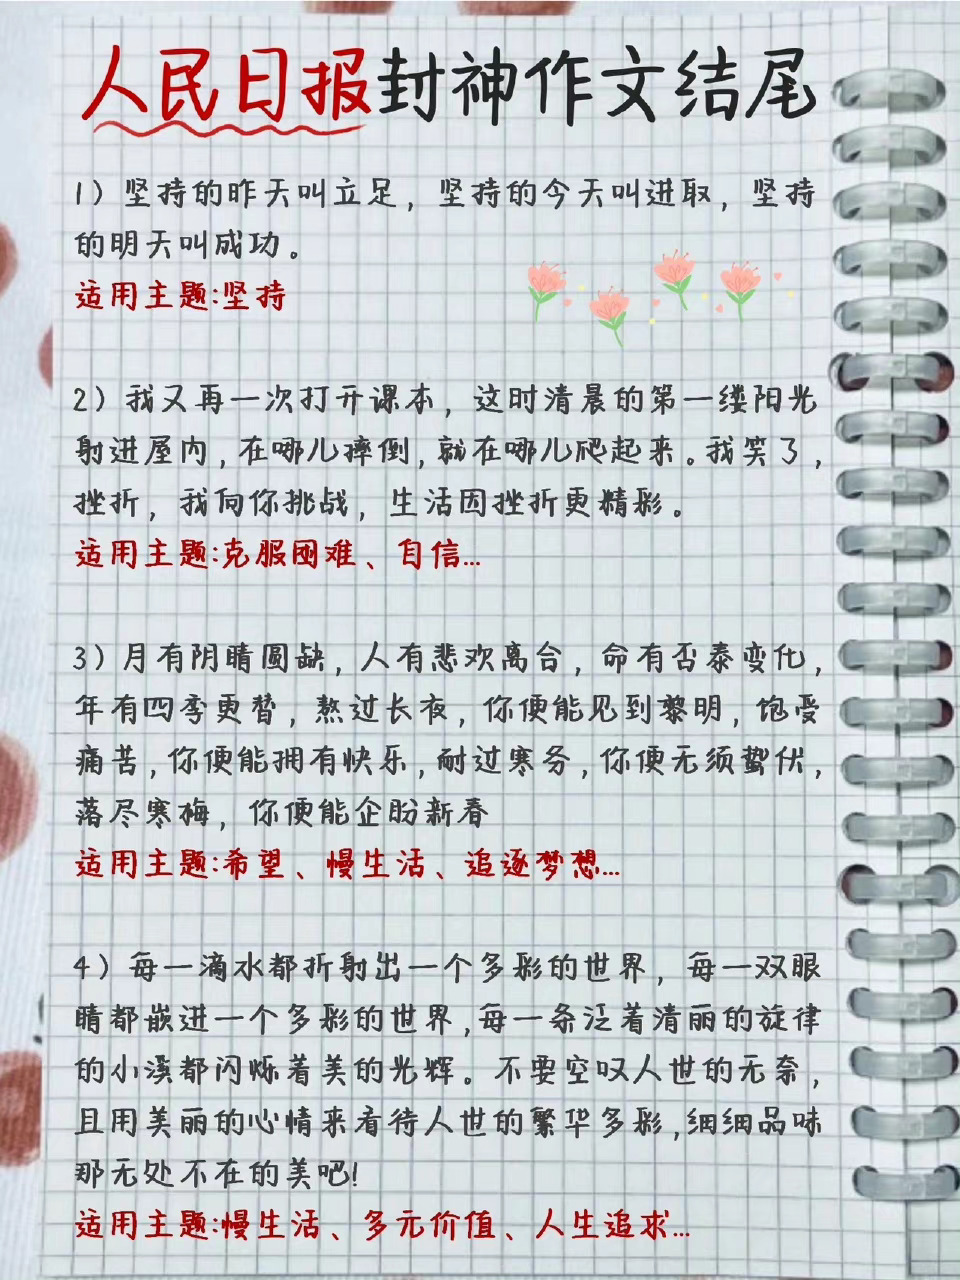 人民日报封神作文结尾
1）坚持的昨天叫立足，坚持的今天叫进取，坚持
的明天叫成功。
适用主题:坚持
2）我又再一次打开课本，这时清晨的第一缕阳光
射进屋内，在哪儿摔倒，就在哪儿爬起来。我笑了，
挫折，我向你挑战，生活因挫折更精彩。
适用主题:克服困难、自信...
3）月有阴晴圆缺，人有悲欢离合，命有否泰变化，
年有四季更替，熬过长夜，你便能见到黎明，饱受
痛苦，你便能拥有快乐，耐过寒冬，你便无须蛰伏，
落尽寒梅，你便能企盼新春
适用主题:希望、慢生活、追逐梦想...
4）每一滴水都折射出一个多彩的世界，每一双眼
睛都嵌进一个多彩的世界，每一条泛着清丽的旋律
的小溪都闪烁着美的光辉。不要空叹人世的无奈，
且用美丽的心情来看待人世的繁华多彩，细细品味
那无处不在的美吧!
适用主题:慢生活、多元价值、人生追求...